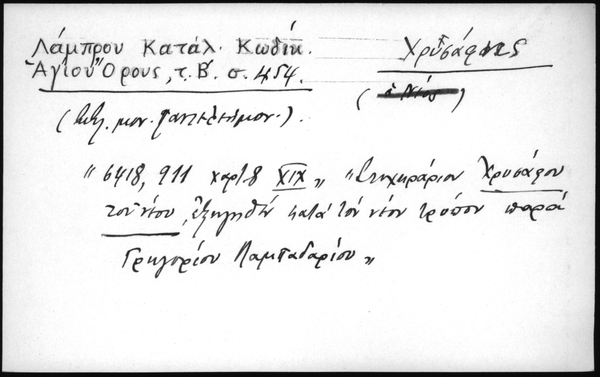 Λάμπρου Κατάλ. Κωδίκ.
Ἁγίου Ὄρους, τ. Β΄. σ. 454.
Χρυσάφης
(ὁ Νέος)
(Βιβλ. μον. Παντελεήμον.).
" 6418, 911 χαρτ. 8 XIX „ "Στιχηράριον Χρυσάφου
τοῦ νέου, ἐξηγηθὲν κατὰ τὸν νέον τρόπον παρὰ
Γρηγορίου Λαμπαδαρίου „